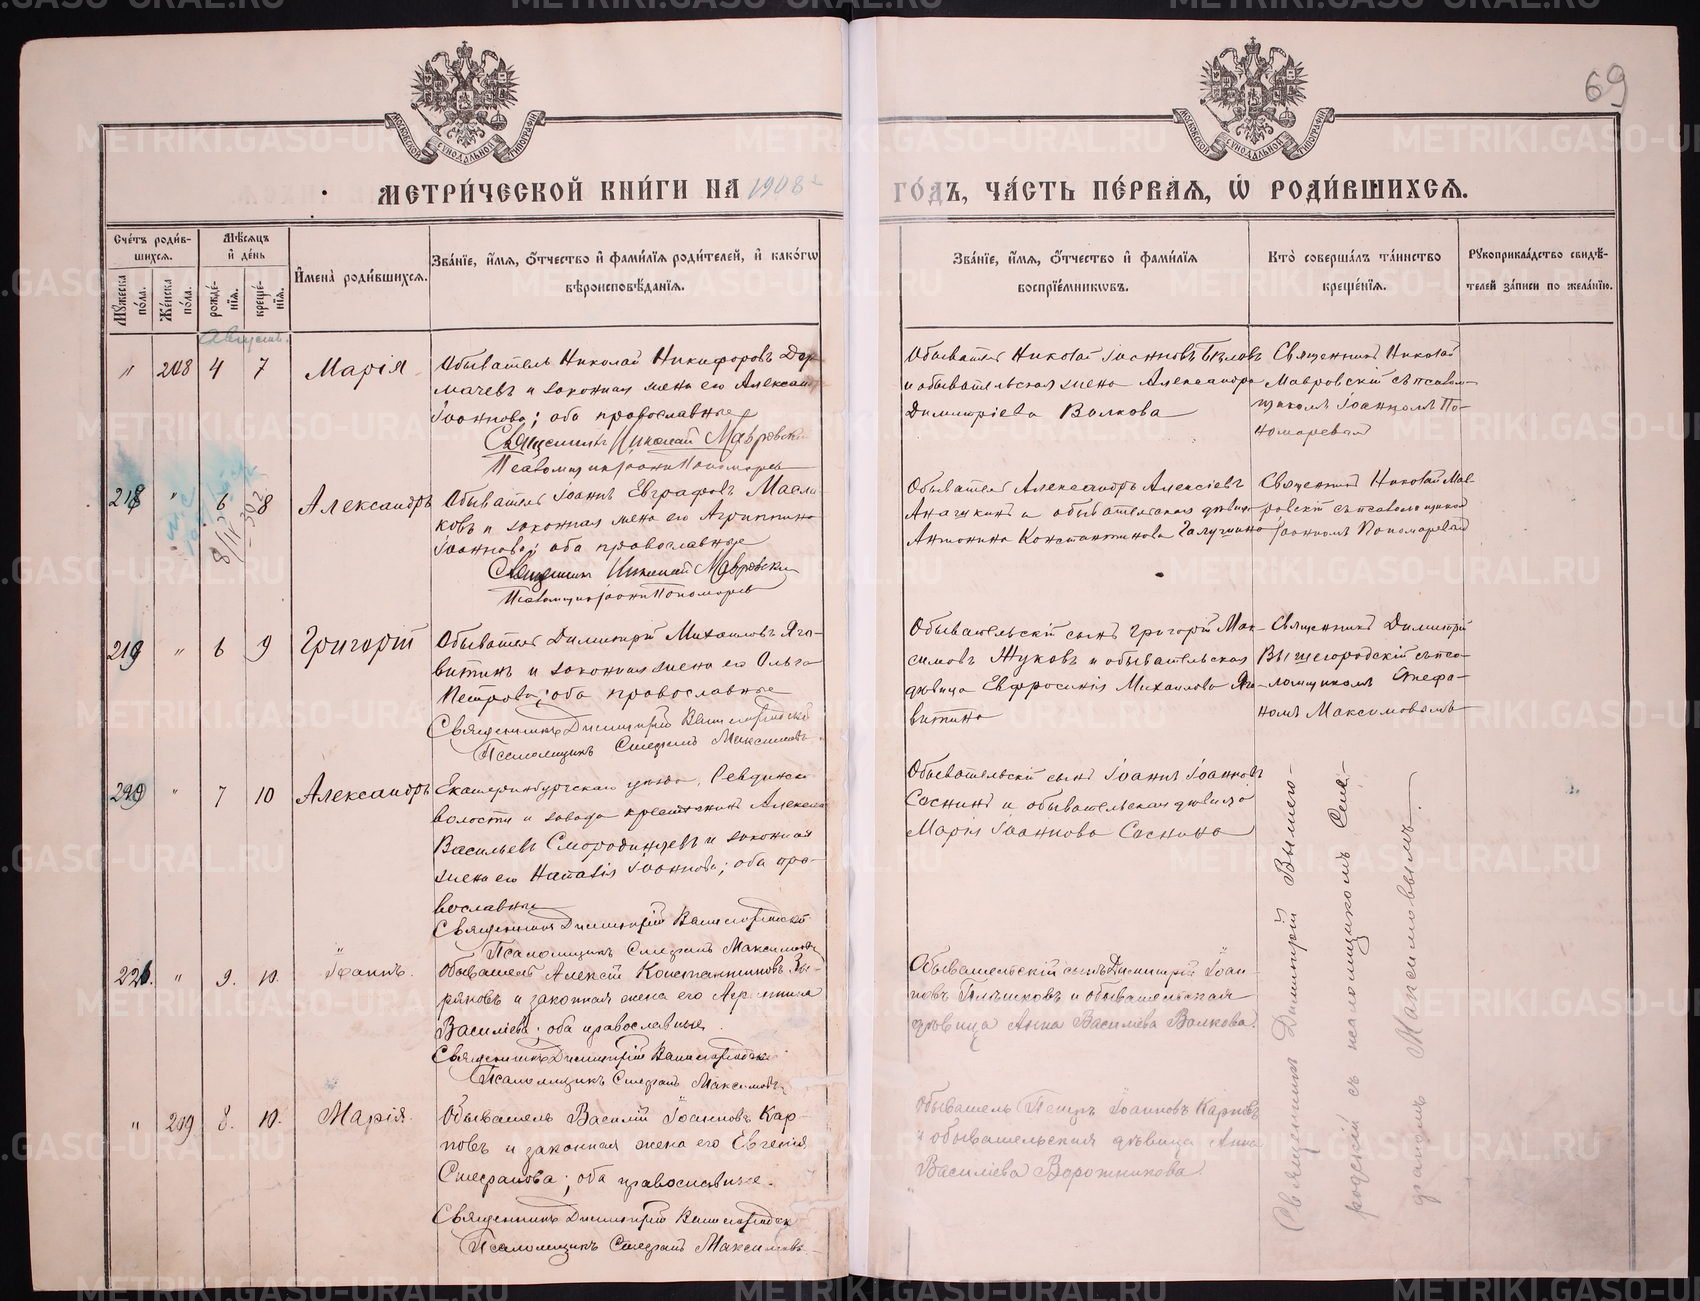 69
МОСКОВСКОЙ СѴНОДАЛЬНОЙ ТИПОГРАФІИ
МОСКОВСКОЙ СѴНОДАЛЬНОЙ ТИПОГРАФІИ
МЕТРИ́ЧЕСКОЙ КНИ́ГИ НА 1908 ГО́ДЪ, ЧА́СТЬ ПЕ́РВАЯ, Ѡ РОДИ́ВШИХСЯ.
Сче́тъ роди́в-
шихся.
Мꙋжеска по́ла.
Же́нска по́ла.
Мѣ́сяцъ
и҆ де́нь
рожде́-
нїя.
креще́-
нїя.
И҆мена̀ роди́вшихся.
Зва́нїе, и҆́мя, о҆́тчество и҆ фами́лїя роди́телей, и҆ како́гѡ
вѣроисповѣ́данїя.
Зва́нїе, и҆́мя, о҆́тчество и҆ фами́лїя
воспрїе́мникѡвъ.
Кто̀ соверша́лъ та́инство
креще́нїя.
Рꙋкоприкла́дство свидѣ́-
телей за́писи по жела́нїю.
Августъ.
" 208 4 7 Марія
Обыватель Николай Никифоровъ Дер-
мачевъ и законная жена его Александра
Іоаннова; оба православные
Священникъ Николай Мавровскій
Псаломщикъ Іоаннъ Пономаревъ
Обыватель Николай Іоанновъ Бѣловъ
и обывательская жена Александра
Димитріева Волкова
Священникъ Николай
Мавровскій съ псалом-
щикомъ Іоанномъ По-
номаревымъ
218 " 6 8 Александръ
Обыватель Іоаннъ Евграфовъ Масли-
ковъ и законная жена его Агриппина
Іоаннова; оба православные
Священникъ Николай Мавровскій
Псаломщикъ Іоаннъ Пономаревъ
Обыватель Александръ Алексіевъ
и обывательская дѣвица
Антонина Константинова Галущина
Священникъ Николай Мав-
ровскій съ псаломщикомъ
Іоанномъ Пономаревымъ
219 " 6 9 Григорій
Обыватель Димитрій Михаиловъ Яго-
витинъ и законная жена его Ольга
Петрова; оба православные
Священникъ Димитрій Вышегородскій
Псаломщикъ Стефанъ Максимовъ
Обывательскій сынъ Григорій Мак-
симовъ Жуковъ и обывательская
дѣвица Евфросинія Михаилова Яго-
витина
Священникъ Димитрій
Вышегородскій съ пса-
ломщикомъ Стефа-
номъ Максимовымъ
220 " 7 10 Александръ
Екатеринбургскаго уѣзда, Ревдинской
волости и завода крестьянинъ Алексѣй
Васильевъ Смородинцевъ и законная
жена его Наталія Іоаннова; оба пра-
вославные
Священникъ Димитрій Вышегородскій
Псаломщикъ Стефанъ Максимовъ
Обывательскій сынъ Іоаннъ Іоанновъ
Соснинъ и обывательская дѣвица
Марія Іоаннова Соснина
221. " 9. 10. Іоаннъ.
Обыватель Алексій Константиновъ Зы-
ряновъ и законная жена его Агриппина
Василіева. оба православные.
Священникъ Димитрій Вышегородскій
Псаломщикъ Стефанъ Максимовъ
Обывательскій сынъ Димитрій Іоан-
новъ и обывательская
дѣвица Анна Василіева Волкова.
" 209 8. 10. Марія.
Обыватель Василій Іоанновъ Кар-
повъ и законная жена его Евгенія
Стефанова; оба православные.
Священникъ Димитрій Вышегородскій
Псаломщикъ Стефанъ Максимовъ
Обыватель Петръ Іоанновъ Карповъ
и обывательская дѣвица Анна
Василіева Ворожникова.
Священникъ Димитрій Вышего-
родскій съ псаломщикомъ Сте-
фаномъ Максимовымъ.